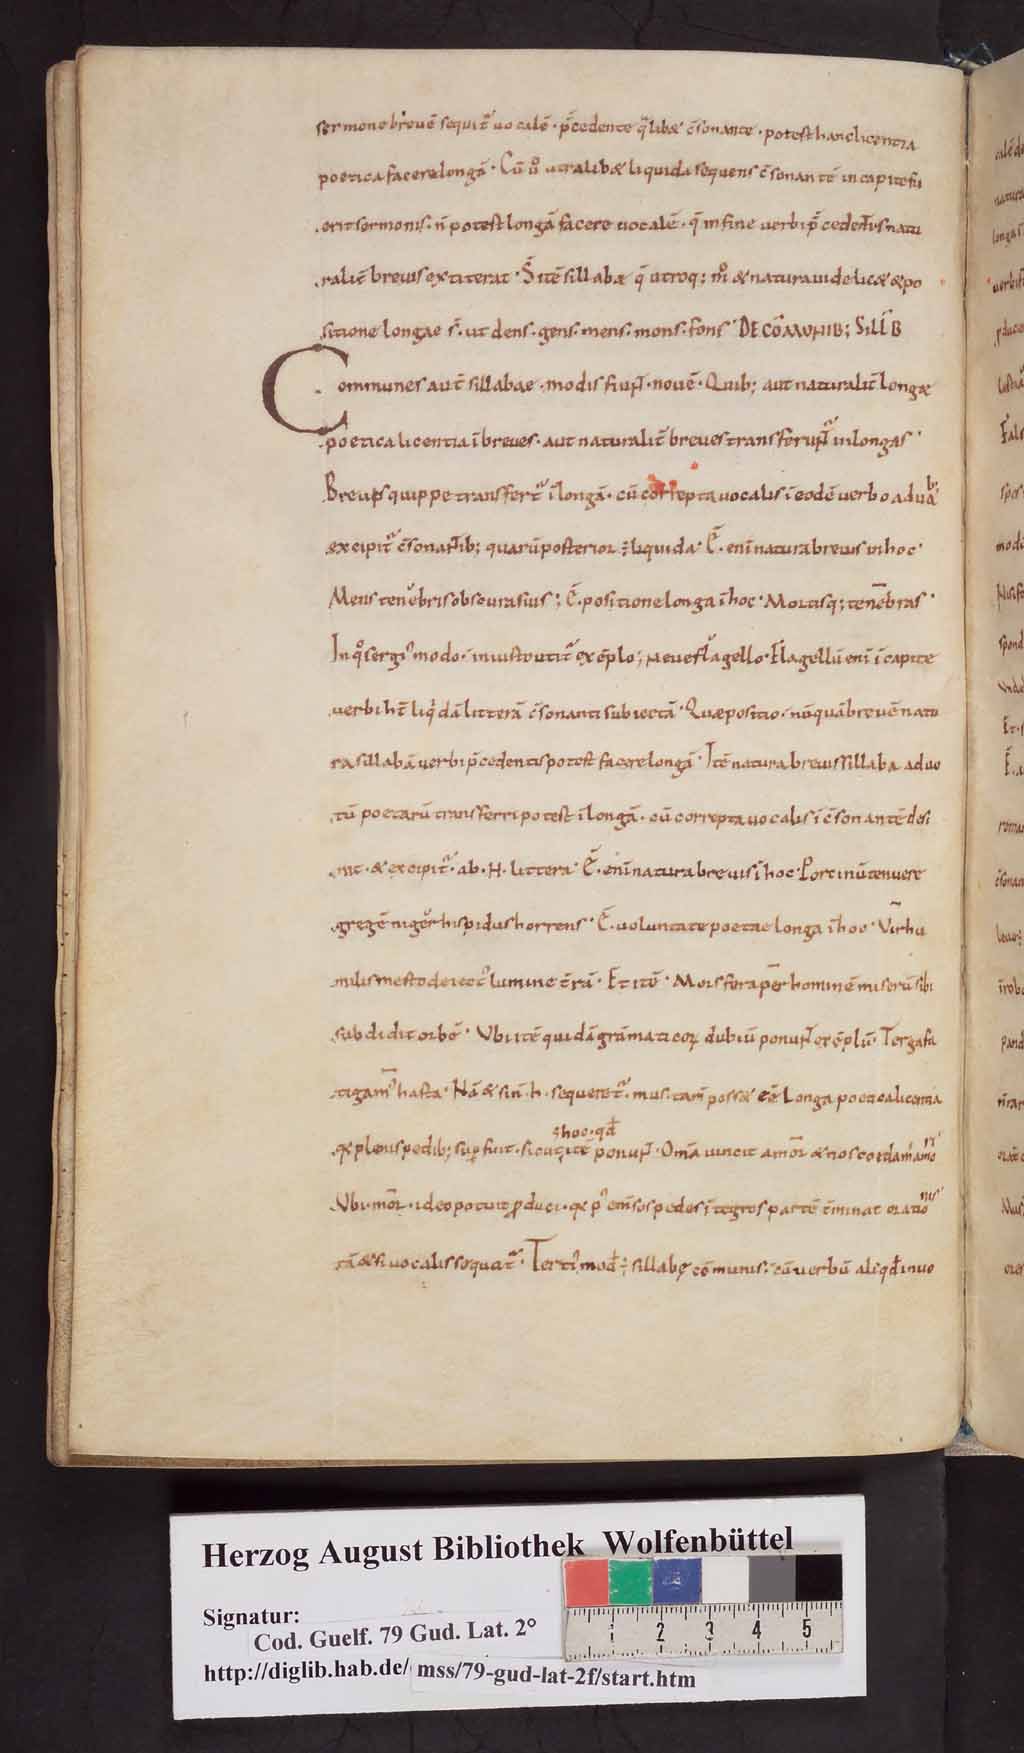 sermone breuē sequit̄ uocalē · p̄cedente q̄libæ c̄sonante · potest hanc licentia
poetica facere longā · Cū ů utralibæ liquida sequens c̄sonantē in capite fu
erit sermonis · ñ potest longā facere uocalē · q̄ in fine uerbi p̄cedeñtis natu
ralit̄ breuis extiterat · S̄ itē sillabæ q̄ utroq; m̊ & natura uidelicæ & po
sitione longae s̄ · ut dens · gens · mens · mons · fons · DE CŌMUNIB; SILL̄B
Communes aut̄ sillabae · modis fiuñt · nouē · Quib; aut naturalit̄ longæ
poetica licentia ī breues · aut naturalit̄ breues transferuñt̄ in longas ·
Breuis quippe transfert̄ ī longā · cū correpta uocalis ī eodē uerbo a duab;
excipit̄ c̄sonañtib; quarū posterior ÷ liquida · Ē · enī natura breuis in hoc ·
Mens tenebris obscura suis; Ē · positione longa ī hoc · Mortisq; tenebras ·
In q̊ sergi᾽ modo · iniusto utit̄ exēplo; neue flagello · Flagellū enī ī capite
uerbi h̄t liq̇dā litterā c̄sonanti subiectā · Quæ positio · nūquā breuē natu
ra sillabā uerbi p̄cedentis potest facere longā · Itē natura breuis sillaba ad uo
tū poetarū transferri potest ī longā · cū correpta uocalis ī c̄sonantē desi
nit · & excipit̄ · ab · H · littera · Ē · enī natura breuis ī hoc · Porcinū tenuere
gregē niger hispidus horrens · Ē · uoluntate poetae longa ī hoc · Vir hu
milis mesto deiect᾽ lumine t̄rā · Et itē · Mors fera per hominē miserū sibi
subdidit orbē · Vbi itē quidā grāmaticoꝝ dubiū ponuñt exēplū · Terga fa
tigam᾽ hasta · Nā & si ñ · h · sequeret̄ · mus · tam̄ possæ eē longa poetica licentia
s hoc · qđ
q̨ plenis pedib; sup̄fuit · sicut ite ponuñt · Om̄a uincit amor & nos cedam᾽ amori
Vbi · mor · ideo potuit produci · q̨ p᾽ emēsos pedes ītegros partē t̄minat orationis
tā & si uocalis sequat̄ · Terti᾽ mod᾽ ÷ sillabę cōmunis · cū uerbū aliqđ in uo
Herzog August Bibliothek Wolfenbüttel
Signatur:
Cod. Guelf. 79 Gud. Lat. 2°
http://diglib.hab.de/ mss/79-gud-lat-2f/start.htm
1 2 3 4 5